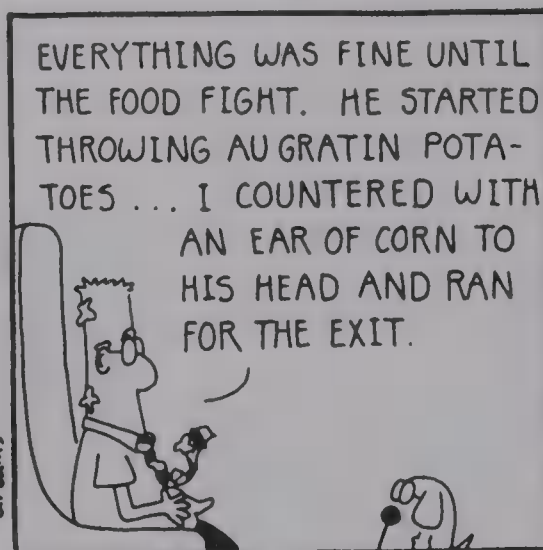 EVERYTHING WAS FINE UNTIL
THE FOOD FIGHT. HE STARTED
THROWING AU GRATIN POTA-
TOES ... I COUNTERED WITH
AN EAR OF CORN TO
HIS HEAD AND RAN
FOR THE EXIT.